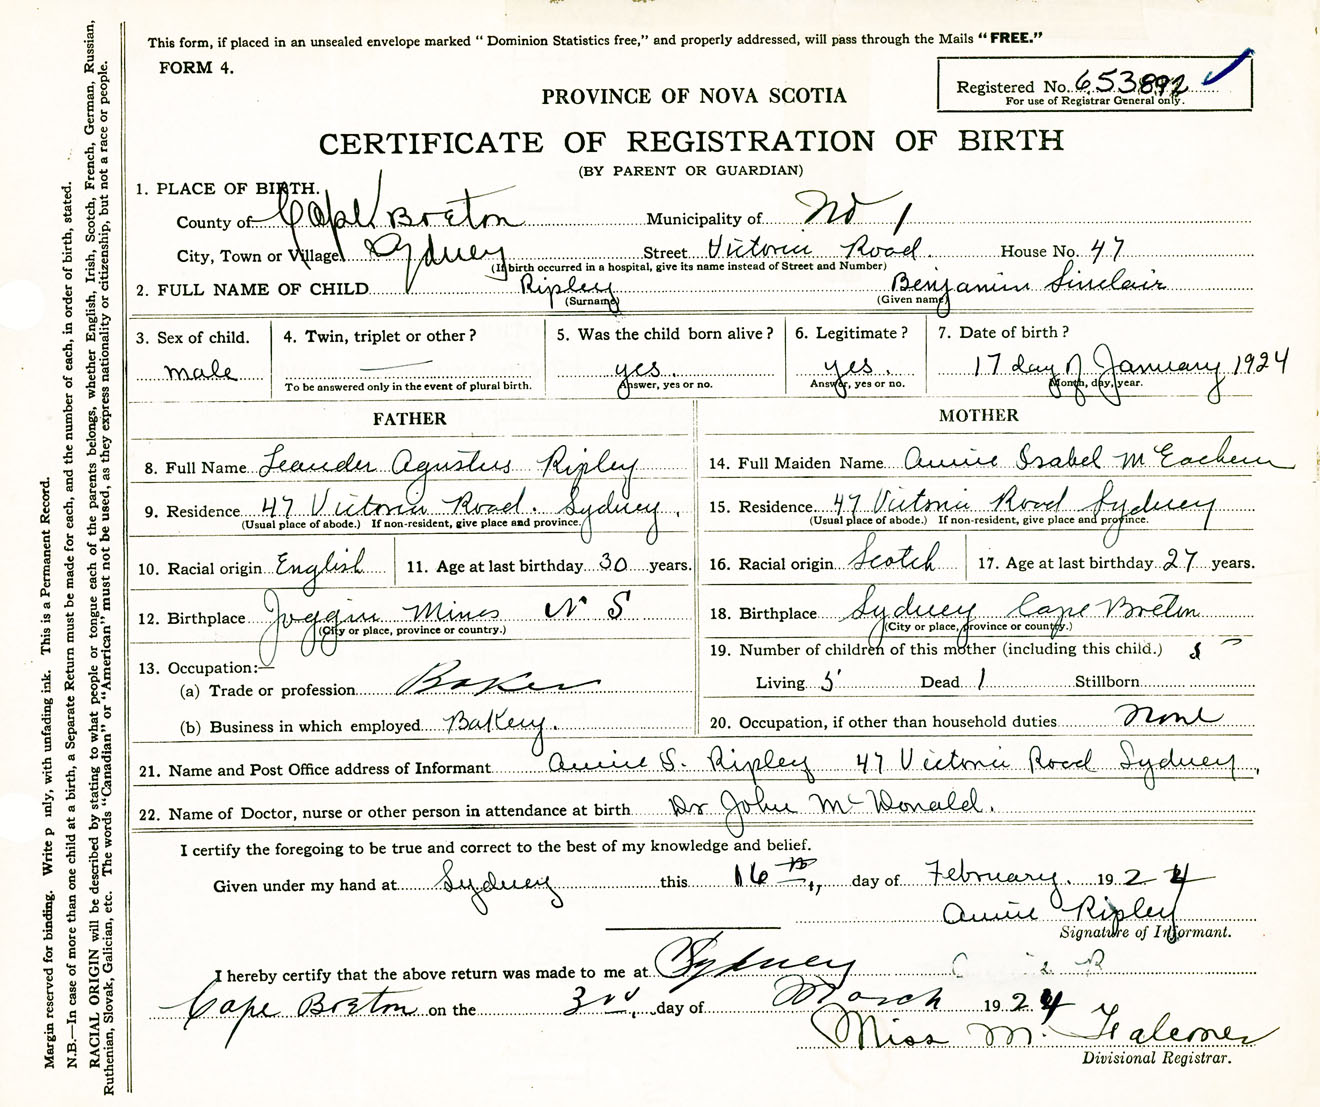 This form, if placed in an unsealed envelope marked " Dominion Statistics free," and properly addressed, will pass through the Mails "FREE."
FORM 4.
Registered No. 653892
For use of Registrar General only.
PROVINCE OF NOVA SCOTIA
CERTIFICATE OF REGISTRATION OF BIRTH
(BY PARENT OR GUARDIAN)
1. PLACE OF BIRTH.
County of Cape Breton Municipality of No 1
City, Town or Village Sydney Street Victoria Road. House No. 47
(If birth occurred in a hospital, give its name instead of Street and Number)
2. FULL NAME OF CHILD Ripley Benjamin Sinclair
(Surname) (Given name)
3. Sex of child. 4. Twin, triplet or other? 5. Was the child born alive? 6. Legitimate? 7. Date of birth?
male — yes. yes. 17 day of January 1924
To be answered only in the event of plural birth. Answer, yes or no. Answer, yes or no. Month, day, year.
FATHER MOTHER
8. Full Name Leander Agustus Ripley
9. Residence 47 Victoria Road. Sydney.
(Usual place of abode.) If non-resident, give place and province.
10. Racial origin English 11. Age at last birthday 30 years.
12. Birthplace Joggin Mines N S
(City or place, province or country.)
13. Occupation:—
(a) Trade or profession Baker
(b) Business in which employed Bakery.
14. Full Maiden Name Annie Isabel McEachern
15. Residence 47 Victoria Road Sydney
(Usual place of abode.) If non-resident, give place and province.
16. Racial origin Scotch 17. Age at last birthday 27 years.
18. Birthplace Sydney Cape Breton
(City or place, province or country.)
19. Number of children of this mother (including this child.)
Living 5 Dead 1 Stillborn
20. Occupation, if other than household duties None
21. Name and Post Office address of Informant Annie S. Ripley 47 Victoria Road Sydney,
22. Name of Doctor, nurse or other person in attendance at birth Dr John McDonald.
I certify the foregoing to be true and correct to the best of my knowledge and belief.
Given under my hand at Sydney this 16th, day of February. 1924
Annie Ripley
Signature of Informant.
I hereby certify that the above return was made to me at Sydney
Cape Breton on the 3rd, day of March 1924
Miss M. Falconer
Divisional Registrar.
Margin reserved for binding. Write p nly, with unfading ink. This is a Permanent Record.
N.B.—In case of more than one child at a birth, a Separate Return must be made for each, and the number of each, in order of birth, stated.
RACIAL ORIGIN will be described by stating to what people or tongue each of the parents belongs, whether English, Irish, Scotch, French, German, Russian,
Ruthenian, Slovak, Galician, etc. The words "Canadian" or "American" must not be used, as they express nationality or citizenship, but not a race or people.